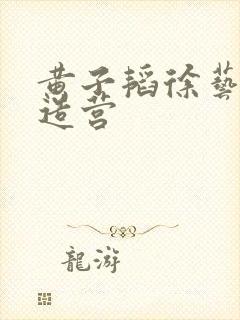 黄子韬徐藝
造营
龍游